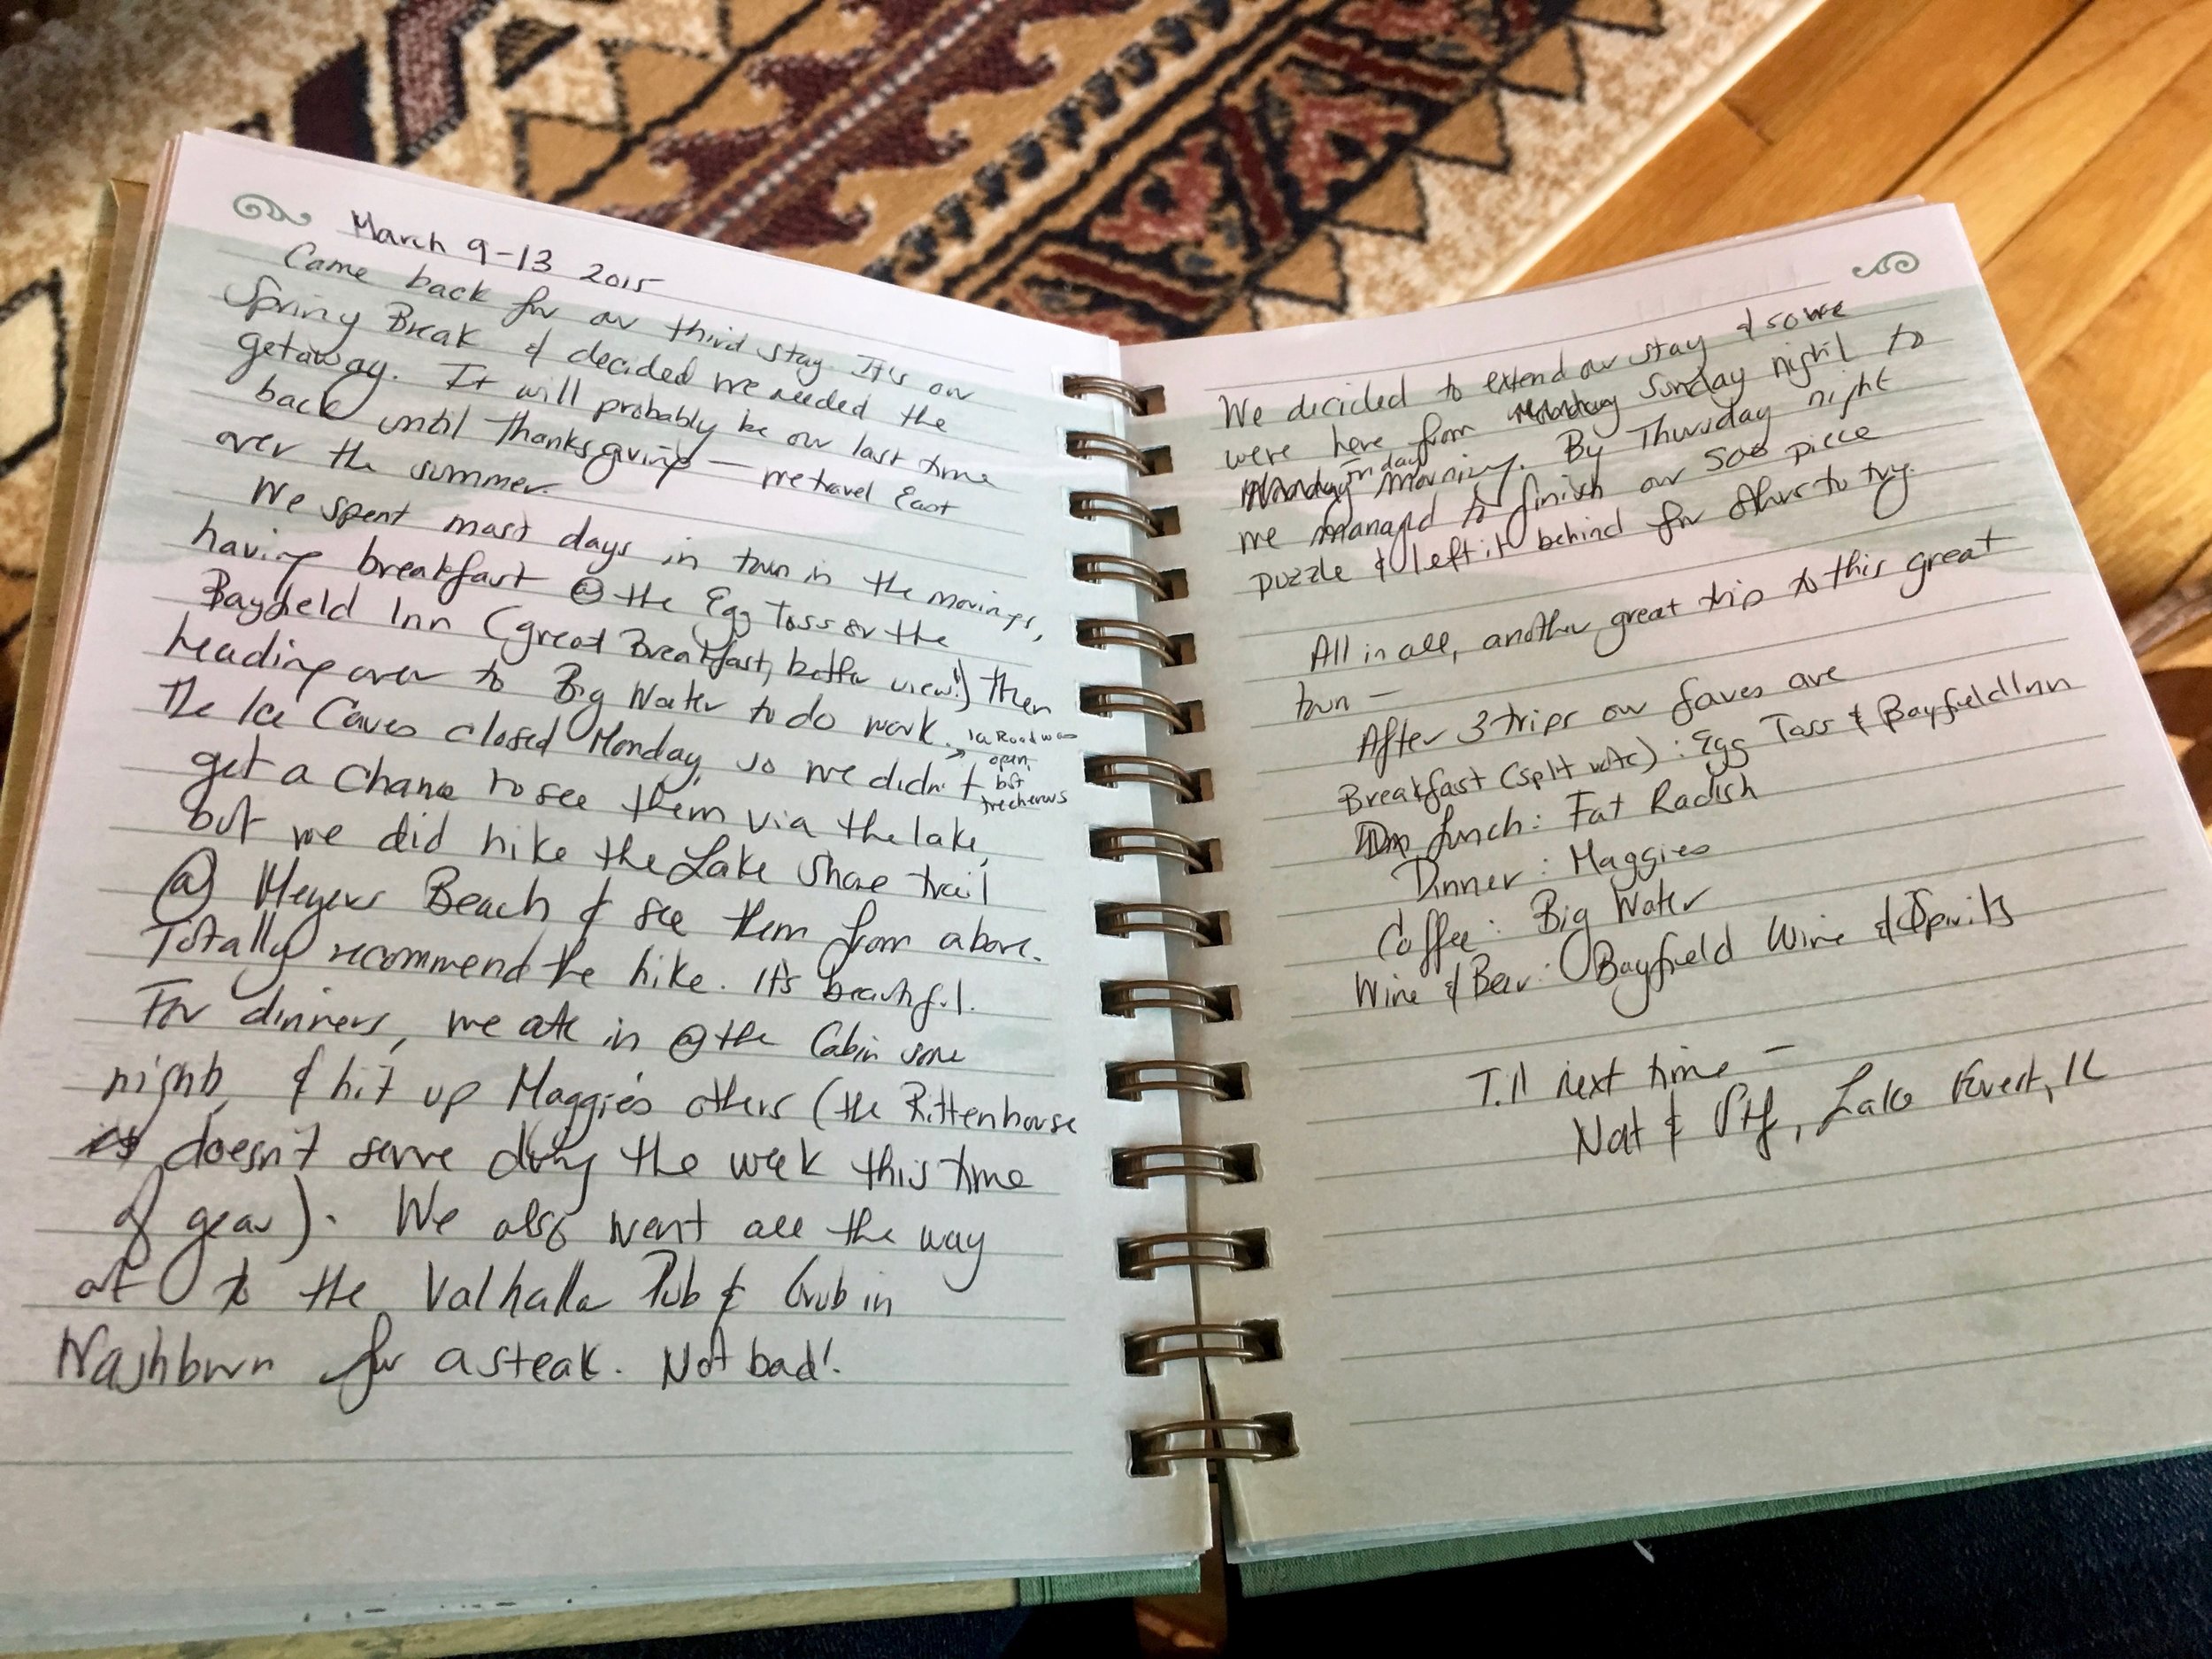 March 9-13 2015
Came back for our third stay. It's our
Spring Break & decided we needed the
getaway. It will probably be our last time
back until Thanksgiving — we travel East
over the summer.
We spent most days in town in the mornings,
having breakfast @ the Egg Toss or the
Bayfield Inn (great Breakfast, better view!) then
heading over to Big Water to do work.
The Ice Caves closed Monday, so we didn't
Ice Road was
open,
but
trecherous
get a chance to see them via the lake,
but we did hike the Lake Shore trail
@ Meyers Beach & see them from above.
Totally recommend the hike. It's beautiful.
For dinners, we ate in @ the Cabin some
nights, & hit up Maggies others (the Rittenhouse
doesn't serve during the week this time
of year). We also went all the way
out to the Valhalla Pub & Grub in
Washburn for a steak. Not bad!
We decided to extend our stay & so we
were here from Monday Sunday night to
Monday Friday morning. By Thursday night
we managed to finish our 500 piece
puzzle & left it behind for others to try.
All in all, another great trip to this great
town —
After 3 trips our faves are
Breakfast (split vote): Egg Toss & Bayfield Inn
Lunch: Fat Radish
Dinner: Maggies
Coffee: Big Water
Wine & Beer: Bayfield Wine & Spirits
Till next time —
Nat & Stf, Lake Forest, IL